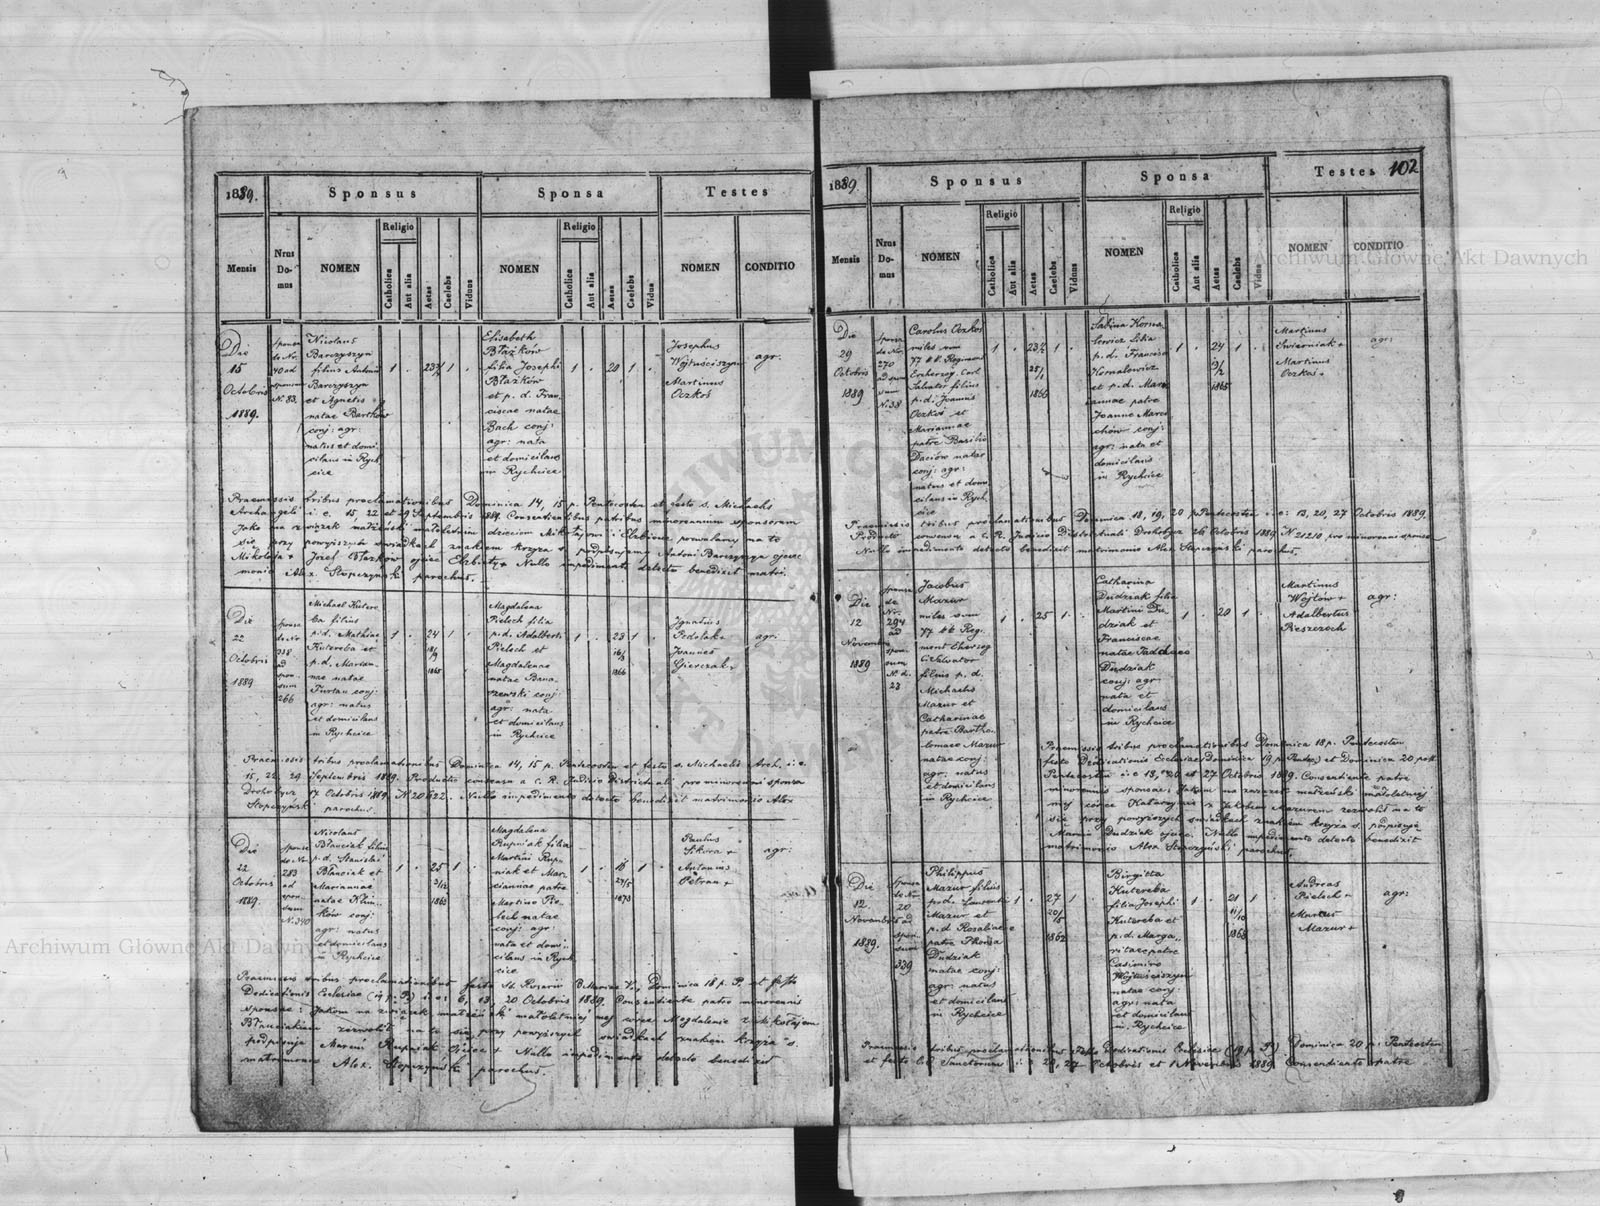 1889.
Sponsus
Sponsa
Testes
Mensis
Nrus Domus
NOMEN
Religio
Catholica
Aut alia
Aetas
Caelebs
Viduus
NOMEN
Religio
Catholica
Aut alia
Aetas
Caelebs
Vidua
NOMEN
CONDITIO
Die
15
Octobris
1889.
Sponsae
de Nr.
40 ad
sponsum
N. 83.
Nicolaus
Barczyszyn
filius Antonii
Barczyszyn
et Agnetis
natae Bartków
conj: agr:
natus et domi
cilans in Rych
cice
1
23
1
Elisabeth
Błażków
filia Josephi
Błażków
et p. d. Fran-
ciscae natae
Bach conj:
agr: nata
et domicilans
in Rychcice
1
20
1
Josephus
Wojtuściszyn
Martinus
Oczkoś
agr.
Praemissis tribus proclamationibus Dominica 14, 15 p. Pentecosten et festo s. Michaelis
Archangeli i. e. 15, 22 et 29 Septembris 1889. Consentientibus patribus minorennium sponsorum
Jako na związek małżeński małoletnim dzieciom Mikołajowi i Elżbiecie pozwalamy na to
się przy powyższych świadkach znakiem krzyża s. podpisujemy Antoni Barczyszyn ojciec
Mikołaja + Józef Błażków ojciec Elżbiety + Nullo impedimento detecto benedixit matri-
monio Alex. Stopczyński parochus.
Die
22
Octobris
1889
Sponsae
de Nr
318
ad
spon-
sum
266
Michael Kutere-
ba filius
p. d. Mathiae
Kutereba et
p. d. Marian-
nae natae
Turtau conj:
agr: natus
et domicilans
in Rychcice
1
24
18/9
1865
1
Magdalena
Pielech filia
p. d. Adalberti
Pielech et
Magdalenae
natae Bana-
szewski conj:
agr: nata
et domicilans
in Rychcice
1
23
16/3
1866
1
Ignatius
Podolak +
Joannes
Gierczak +
agr:
Praemissis tribus proclamationibus Dominica 14, 15 p. Pentecosten et festo s. Michaelis Arch. i: e.
15, 22. 29 Septembris 1889. Producto consensu a c. R. Judicio Districtuali pro minorenni sponsa
Drohobycz 17 Octobris 1889 N. 20622. Nullo impedimento detecto benedixit matrimonio Alex
Stopczyński parochus.
Die
22
Octobris
1889.
Sponsae
de Nr
283
ad
spon-
sum
N. 340
Nicolaus
Błauciak filius
p. d. Stanislai
Błauciak et
Mariannae
natae Klim-
ków conj:
agr: natus
et domicilans
in Rychcice
1
25
3/12
1863
1
Magdalena
Rupniak filia
Martini Rup-
niak et Mar-
ciannae patre
Martino Pie-
lech natae
conj: agr:
nata et domi-
cilans in Rych-
cice
1
16
24/5
1873
1
Paulus
Sikora +
Antonius
Petran +
agr:
Praemissis tribus proclamationibus festo SS. Rosarii B. Mariae V., Dominica 18 p. P. et festo
Dedicationis Ecclesiae (19 p. P.) i: e: 6, 13, 20 Octobris 1889. Consentiente patre minorennis
sponsae: Jakom na związek małżeński małoletniej mej córce Magdalenie z Mikołajem
Błauciakiem zezwolił na to się przy powyższych świadkach znakiem krzyża s.
podpisuję Marcin Rupniak, Ojciec + Nullo impedimento detecto benedixit
matrimonio Alex. Stopczyński parochus.
1889
Sponsus
Sponsa
Testes 102
Mensis
Nrus Domus
NOMEN
Religio
Catholica
Aut alia
Aetas
Caelebs
Viduus
NOMEN
Religio
Catholica
Aut alia
Aetas
Caelebs
Vidua
NOMEN
CONDITIO
Die
29
Octobris
1889
Sponsae
de Nr.
270
ad spon
sum
N. 38
Carolus Oczkoś
miles sum
77 k k. Regiment
Erzherzog Carl
Salvator filius
p. d. Joannis
Oczkoś et
Mariannae
patre Basilio
Daciów natae
conj: agr:
natus et domi-
cilans in Rych
cice
1
23
28/1
1866
1
Sabina Korna-
lewicz filia
p. d. Francisci
Kornalewicz
et p. d. Mari-
annae patre
Joanne Marci-
chów conj:
agr: nata et
domicilans
in Rychcice
1
24
1865
1
Martinus
Świerniak +
Martinus
Oczkoś +
agr:
Praemissis tribus proclamationibus Dominica 18, 19, 20 p. Pentecosten i: e: 13, 20, 27 Octobris 1889.
Producto consensu a C. R. Judicio Districtuali Drohobycz 26 Octobris 1889 N 21210 pro minorenni sponso
Nullo impedimento detecto benedixit matrimonio Alex Stopczyński parochus.
Die
12
Novembris
1889
Sponsae
de
Nr.
294
ad
spon-
sum
N. d.
23
Jacobus
Mazur
miles sum
77 k k Reg-
iment Eherzog
C. Salvator
filius p. d.
Michaelis
Mazur et
Catharinae
patre Bartho-
lomaeo Mazur
natae conj:
agr: natus
et domicilans
in Rychcice
1
25
1
Catharina
Dudziak filia
Martini Du-
dziak et
Franciscae
natae Taddaeo
Dudziak
conj: agr:
nata et
domicilans
in Rychcice
1
20
1
Martinus
Wojtów +
Adalbertus
Pieszczoch
agr:
Praemissis tribus proclamationibus Dominica 18 p. Pentecosten
festo Dedicationis Ecclesiae (Dominica 19 p. Pentec.) et Dominica 20 post
Pentecosten i: e 13, 20 et 27 Octobris 1889. Consentiente patre
minorennis sponsae: Jakom na związek małżeński małoletniej
mej córce Katarzynie z Jakóbem Mazurem zezwolił na to
się przy powyższych świadkach znakiem krzyża s. podpisuję
Marcin Dudziak ojciec. Nullo impedimento detecto benedixit
matrimonio Alex Stopczyński parochus.
Die
12.
Novembris
1889.
Sponsae
de Nr
20
ad
spon-
sum
339
Philippus
Mazur filius
p. d. Laurentii
Mazur et
p. d Rosaliae
patre Thoma
Dudziak
natae conj:
agr: natus
et domicilans
in Rychcice
1
27
20/5
1862
1
Birgitta
Kutereba
filia Josephi
Kutereba et
p. d. Marga-
ritae patre
Casimiro
Wojtuściszyn
natae conj:
agr: nata
et domicilans
in Rychcice
1
21
11/10
1868
1
Andreas
Pielech +
Martinus
Mazur +
agr:
Praemissis tribus proclamationibus festo Dedicationis Ecclesiae (19 p. P.) Dominica 20 p: Pentecosten
et festo O.O. Sanctorum i: e 20, 27 Octobris et 1 Novembris 1889. Consentiente patre
Archiwum Główne Akt Dawnych
Archiwum Główne Akt Dawnych